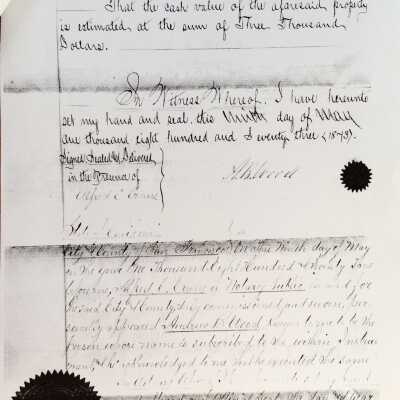 That the cash value of the aforesaid property
is estimated at the sum of Three Thousand
Dollars.
In Witness Whereof, I have hereunto
set my hand and seal this Ninth day of May
one thousand eight hundred and Seventy three (1873).
Signed Sealed & Delivered
in the Presence of
City & County of San Francisco On this Ninth day of May
in the year One Thousand Eight Hundred & Seventy Three
before me, Alfred E. a Notary Public in and for
the said City & County duly commissioned and sworn, per-
sonally appeared Andrew B. Wood known to me to be the
person whose name is subscribed to the within Instru-
ment, & he acknowledged to me that he executed the same